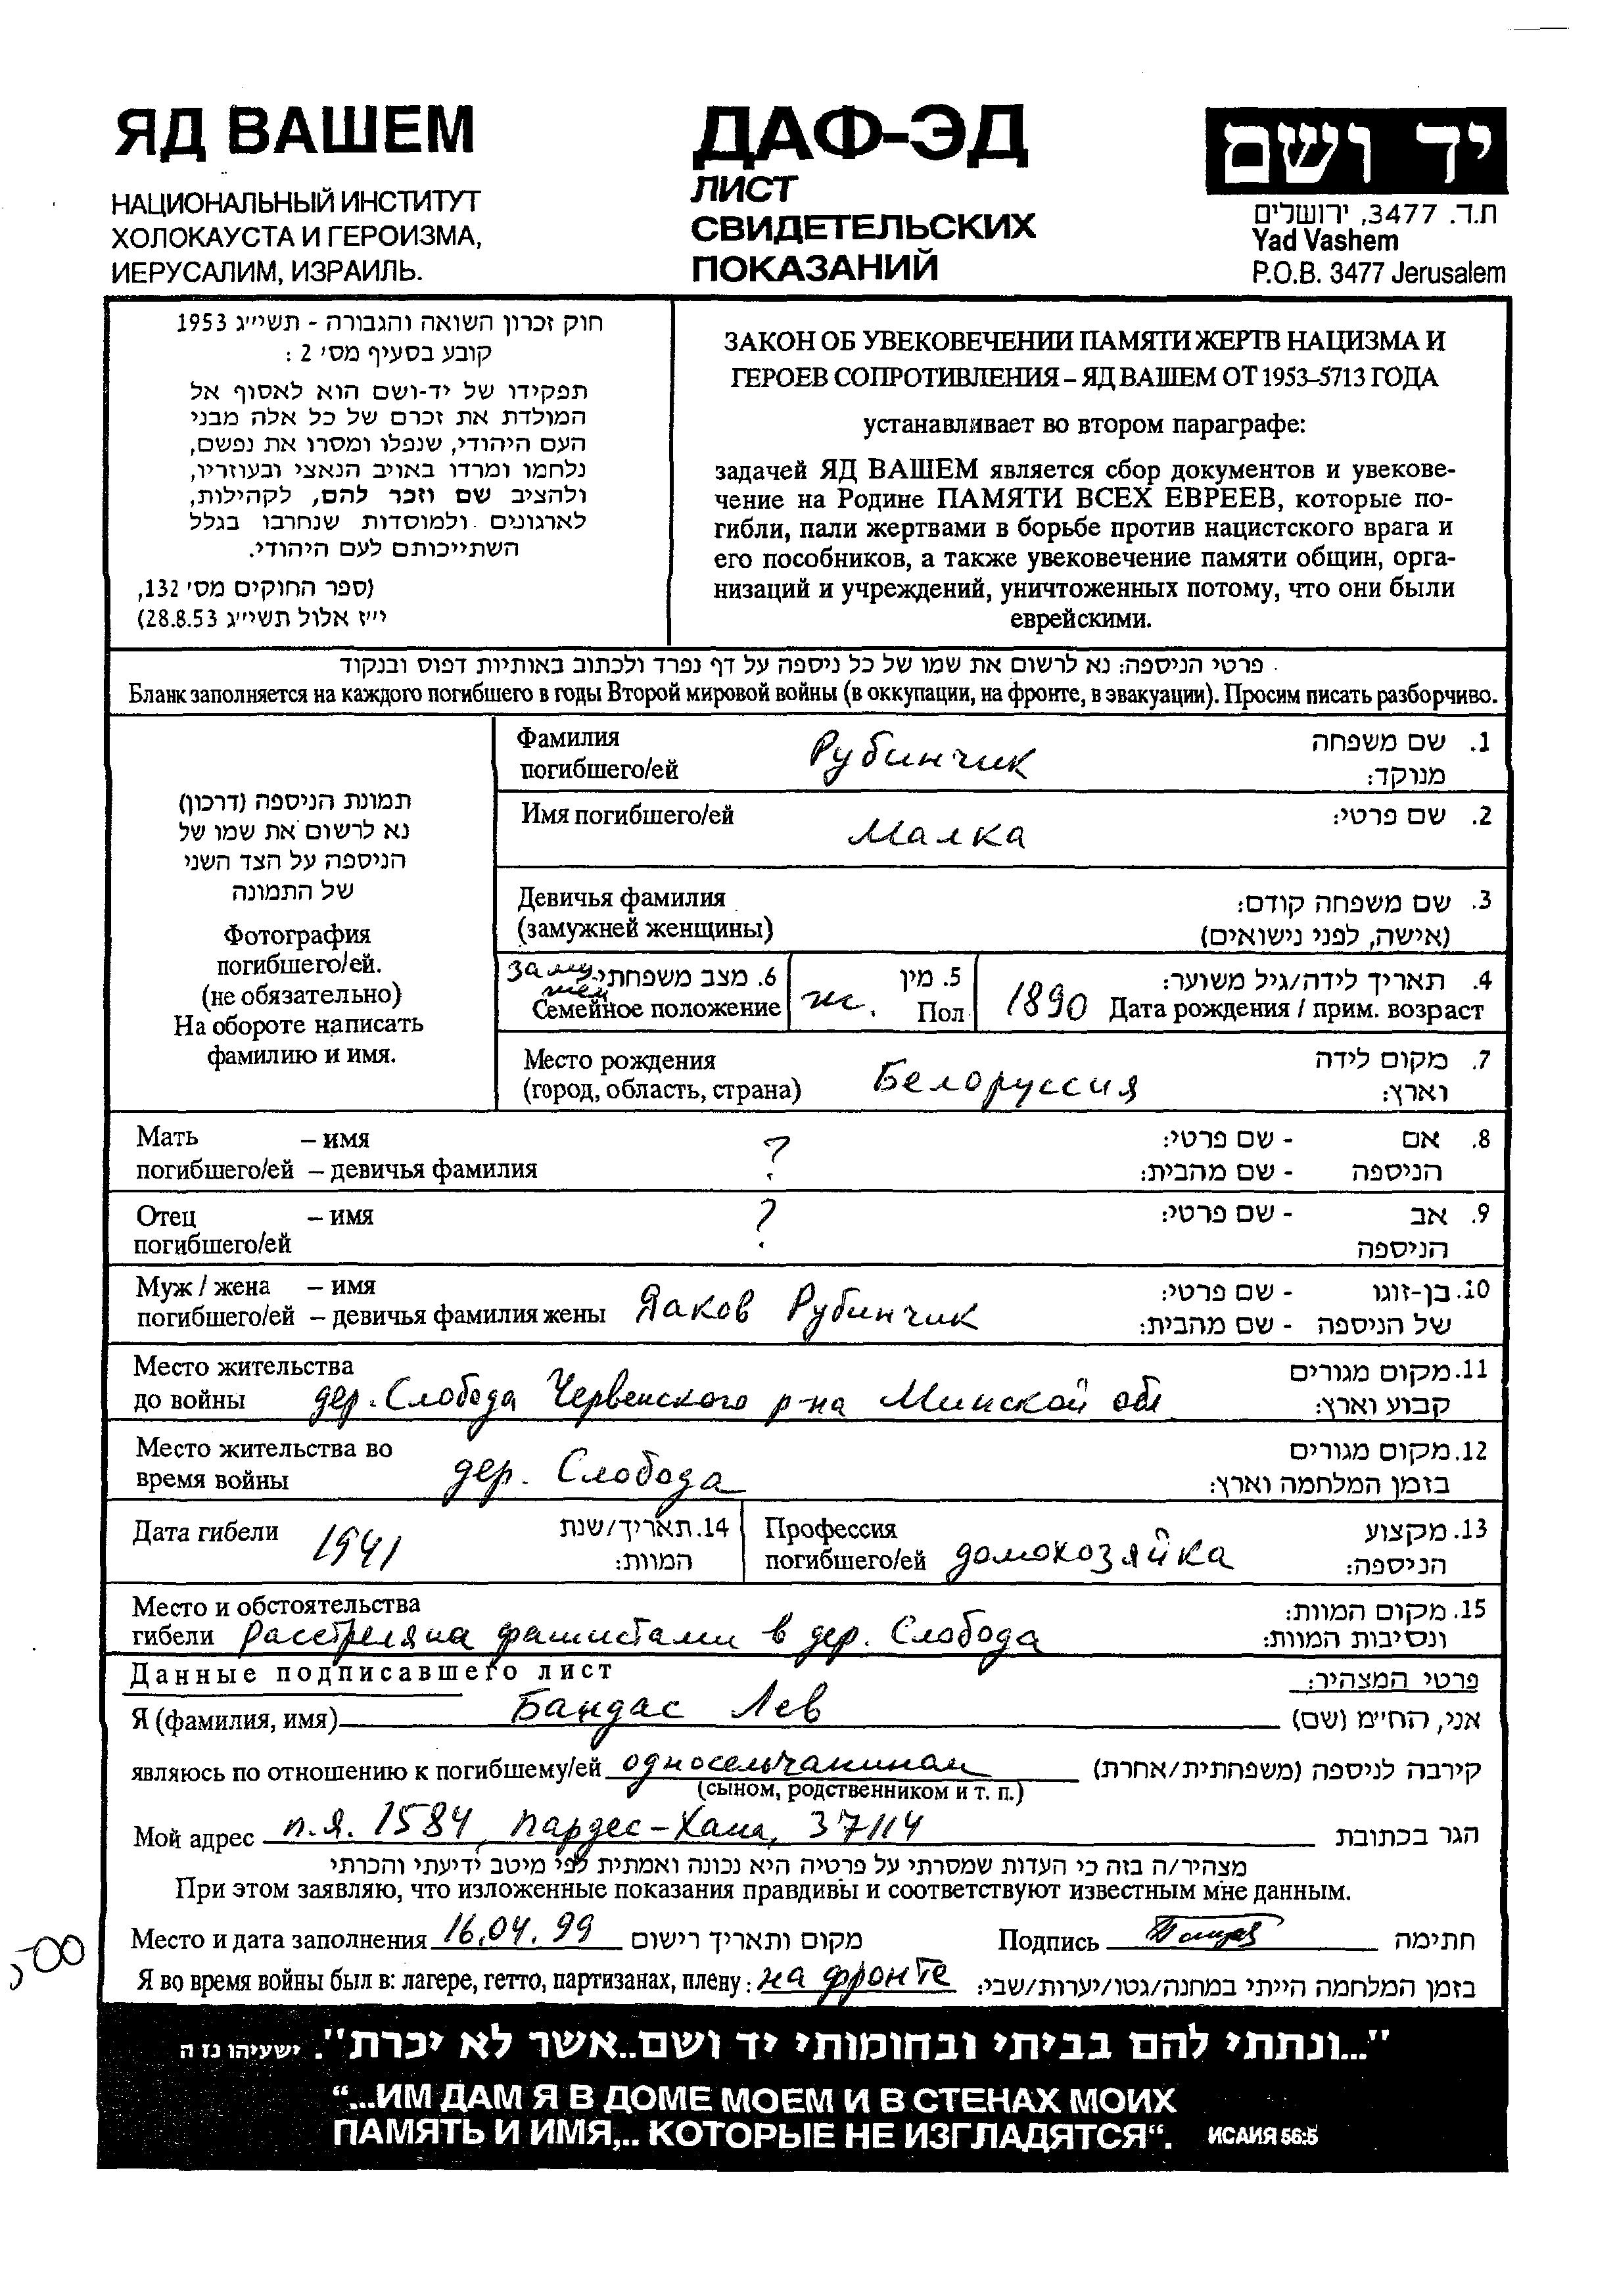 ЯД ВАШЕМ
НАЦИОНАЛЬНЫЙ ИНСТИТУТ
ХОЛОКАУСТА И ГЕРОИЗМА,
ИЕРУСАЛИМ, ИЗРАИЛЬ.
ДАФ-ЭД
ЛИСТ
СВИДЕТЕЛЬСКИХ
ПОКАЗАНИЙ
יד ושם
ת.ד. 3477, ירושלים
Yad Vashem
P.O.B. 3477 Jerusalem
חוק זכרון השואה והגבורה - תשי״ג 1953
קובע בסעיף מס' 2 :
תפקידו של יד-ושם הוא לאסוף אל
המולדת את זכרם של כל אלה מבני
העם היהודי, שנפלו ומסרו את נפשם,
נלחמו ומרדו באויב הנאצי ובעוזריו,
ולהציב שם וזכר להם, לקהילות,
לארגונים ולמוסדות שנחרבו בגלל
השתייכותם לעם היהודי.
(ספר החוקים מס' 132,
י״ז אלול תשי״ג 28.8.53)
ЗАКОН ОБ УВЕКОВЕЧЕНИИ ПАМЯТИ ЖЕРТВ НАЦИЗМА И
ГЕРОЕВ СОПРОТИВЛЕНИЯ – ЯД ВАШЕМ ОТ 1953–5713 ГОДА
устанавливает во втором параграфе:
задачей ЯД ВАШЕМ является сбор документов и увекове-
чение на Родине ПАМЯТИ ВСЕХ ЕВРЕЕВ, которые по-
гибли, пали жертвами в борьбе против нацистского врага и
его пособников, а также увековечение памяти общин, орга-
низаций и учреждений, уничтоженных потому, что они были
еврейскими.
פרטי הניספה: נא לרשום את שמו של כל ניספה על דף נפרד ולכתוב באותיות דפוס ובנקוד
Бланк заполняется на каждого погибшего в годы Второй мировой войны (в оккупации, на фронте, в эвакуации). Просим писать разборчиво.
תמונת הניספה (דרכון)
נא לרשום את שמו של
הניספה על הצד השני
של התמונה
Фотография
погибшего/ей.
(не обязательно)
На обороте написать
фамилию и имя.
Фамилия
погибшего/ей Рубинчик
1. שם משפחה
מנוקד:
Имя погибшего/ей Малка 2. שם פרטי:
Девичья фамилия
(замужней женщины)
3. שם משפחה קודם:
(אישה, לפני נישואים)
замужем 6. מצב משפחתי:
Семейное положение
ж. 5. מין
Пол
4. תאריך לידה/גיל משוער:
1890 Дата рождения / прим. возраст
Место рождения
(город, область, страна) Белоруссия
7. מקום לידה
וארץ:
Мать – имя
погибшего/ей – девичья фамилия ?
8. אם - שם פרטי:
הניספה - שם מהבית:
Отец – имя
погибшего/ей ?
9. אב - שם פרטי:
הניספה
Муж / жена – имя
погибшего/ей – девичья фамилия жены Яаков Рубинчик
10. בן-זוגו - שם פרטי:
של הניספה - שם מהבית:
Место жительства
до войны дер. Слобода Червенского р-на Минской обл
11. מקום מגורים
קבוע וארץ:
Место жительства во
время войны дер. Слобода
12. מקום מגורים
בזמן המלחמה וארץ:
Дата гибели 1941
14. תאריך/שנת
המוות:
Профессия
погибшего/ей домохозяйка
13. מקצוע
הניספה:
Место и обстоятельства
гибели Расстреляна фашистами в дер. Слобода
15. מקום המוות:
ונסיבות המוות:
Данные подписавшего лист פרטי המצהיר:
Я (фамилия, имя) Бандас Лев אני, הח״מ (שם)
являюсь по отношению к погибшему/ей односельчанином קירבה לניספה (משפחתית/אחרת)
(сыном, родственником и т. п.)
Мой адрес п.я. 1584, Пардес-Хана, 37114 הגר בכתובת
מצהיר/ה בזה כי העדות שמסרתי על פרטיה היא נכונה ואמתית לפי מיטב ידיעתי והכרתי
При этом заявляю, что изложенные показания правдивы и соответствуют известным мне данным.
Место и дата заполнения 16.04.99 מקום ותאריך רישום Подпись חתימה
Я во время войны был в: лагере, гетто, партизанах, плену: на фронте בזמן המלחמה הייתי במחנה/גטו/יערות/שבי:
"...ונתתי להם בביתי ובחומותי יד ושם..אשר לא יכרת". ישעיהו נז ה
“...ИМ ДАМ Я В ДОМЕ МОЕМ И В СТЕНАХ МОИХ
ПАМЯТЬ И ИМЯ,.. КОТОРЫЕ НЕ ИЗГЛАДЯТСЯ“. ИСАИЯ 56:5